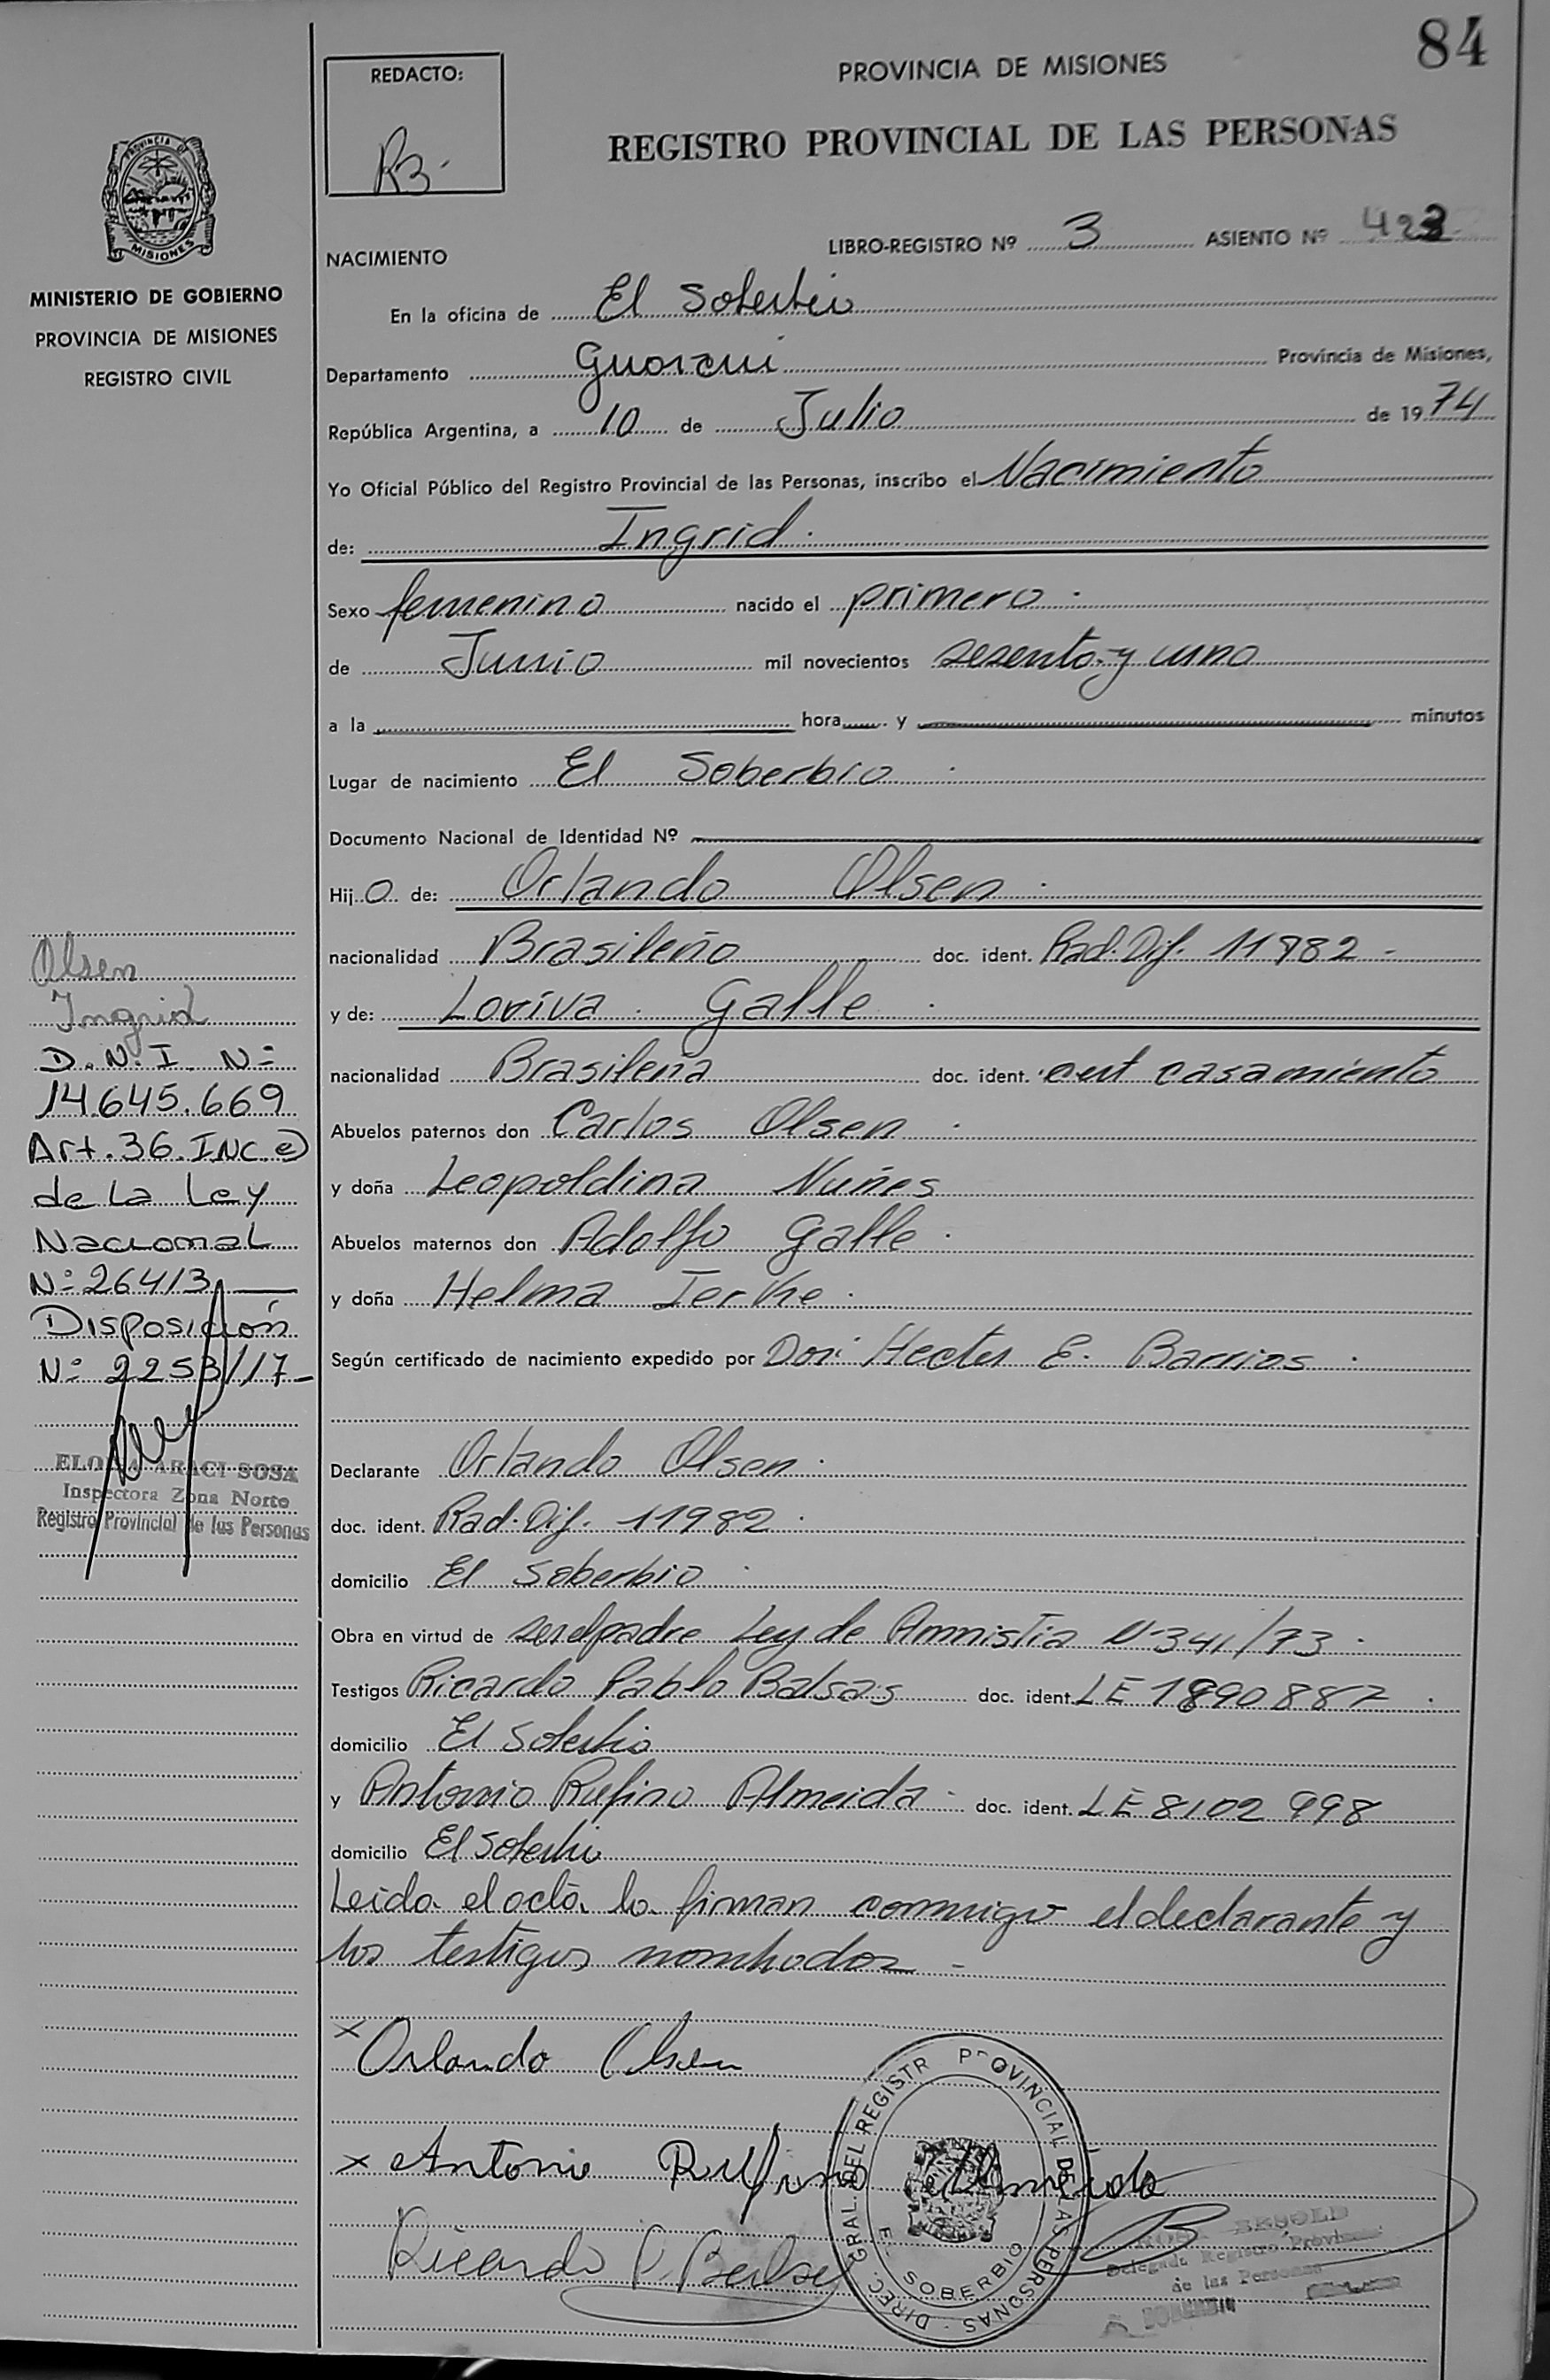 84
REDACTO:
PROVINCIA DE MISIONES
REGISTRO PROVINCIAL DE LAS PERSONAS
PROVINCIA DE
MISIONES
MINISTERIO DE GOBIERNO
PROVINCIA DE MISIONES
REGISTRO CIVIL
LIBRO-REGISTRO Nº 3 ASIENTO Nº 423
NACIMIENTO
En la oficina de El Soberbio
Departamento Guarani Provincia de Misiones,
República Argentina, a 10 de Julio de 1974
Yo Oficial Público del Registro Provincial de las Personas, inscribo el Nacimiento
de: Ingrid.
Sexo femenino nacido el primero.
de Junio mil novecientos sesenta y uno
a la hora y minutos
Lugar de nacimiento El Soberbio.
Documento Nacional de Identidad Nº
Hijo de: Orlando Olsen.
nacionalidad Brasileño doc. ident. Rad. Dif. 11982-
y de: Loriva Galle.
nacionalidad Brasileña doc. ident. cert casamiento
Abuelos paternos don Carlos Olsen.
y doña Leopoldina Nuñes
Abuelos maternos don Adolfo Galle.
y doña Helma Ierke.
Según certificado de nacimiento expedido por Dor: Hector E. Barrios.
Declarante Orlando Olsen.
doc. ident. Rad. Dif. 11982.
domicilio El Soberbio.
Obra en virtud de ser el padre Ley de Amnistia Nº 341/73.
Testigos Ricardo Pablo Balsas doc. ident. LE 1890887.
domicilio El Soberbio
y Antonio Rufino Almeida- doc. ident. LE 8102998
domicilio El Soberbio
Leida el acta la firman conmigo el declarante y
los testigos nombrados-
x Orlando Olsen
x Antonio Rufino Almeida
Ricardo P. Balsas
DIREC. GRAL. DEL REGISTR PROVINCIAL DE LAS PERSONAS
EL SOBERBIO
Delegada Registro Provincial
de las Personas
Olsen
Ingrid
D.N.I. Nº
14.645.669
Art. 36. INC e)
de La Ley
Nacional
Nº 26413
Disposición
Nº 2253/17-
ARACI SOSA
Inspectora Zona Norte
Registro Provincial de las Personas